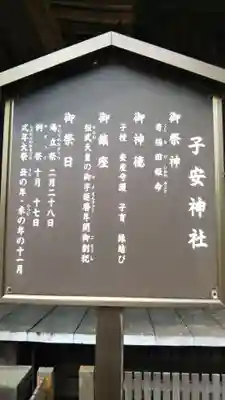 子安神社
御祭神
奇稲田姫命
御神徳
子授 安産守護 子育 縁結び
御鎮座
桓武天皇の御宇延暦年間御創祀
御祭日
湯立祭 二月二十八日
例祭 十月十七日
式年大祭 丑の年・未の年の十一月